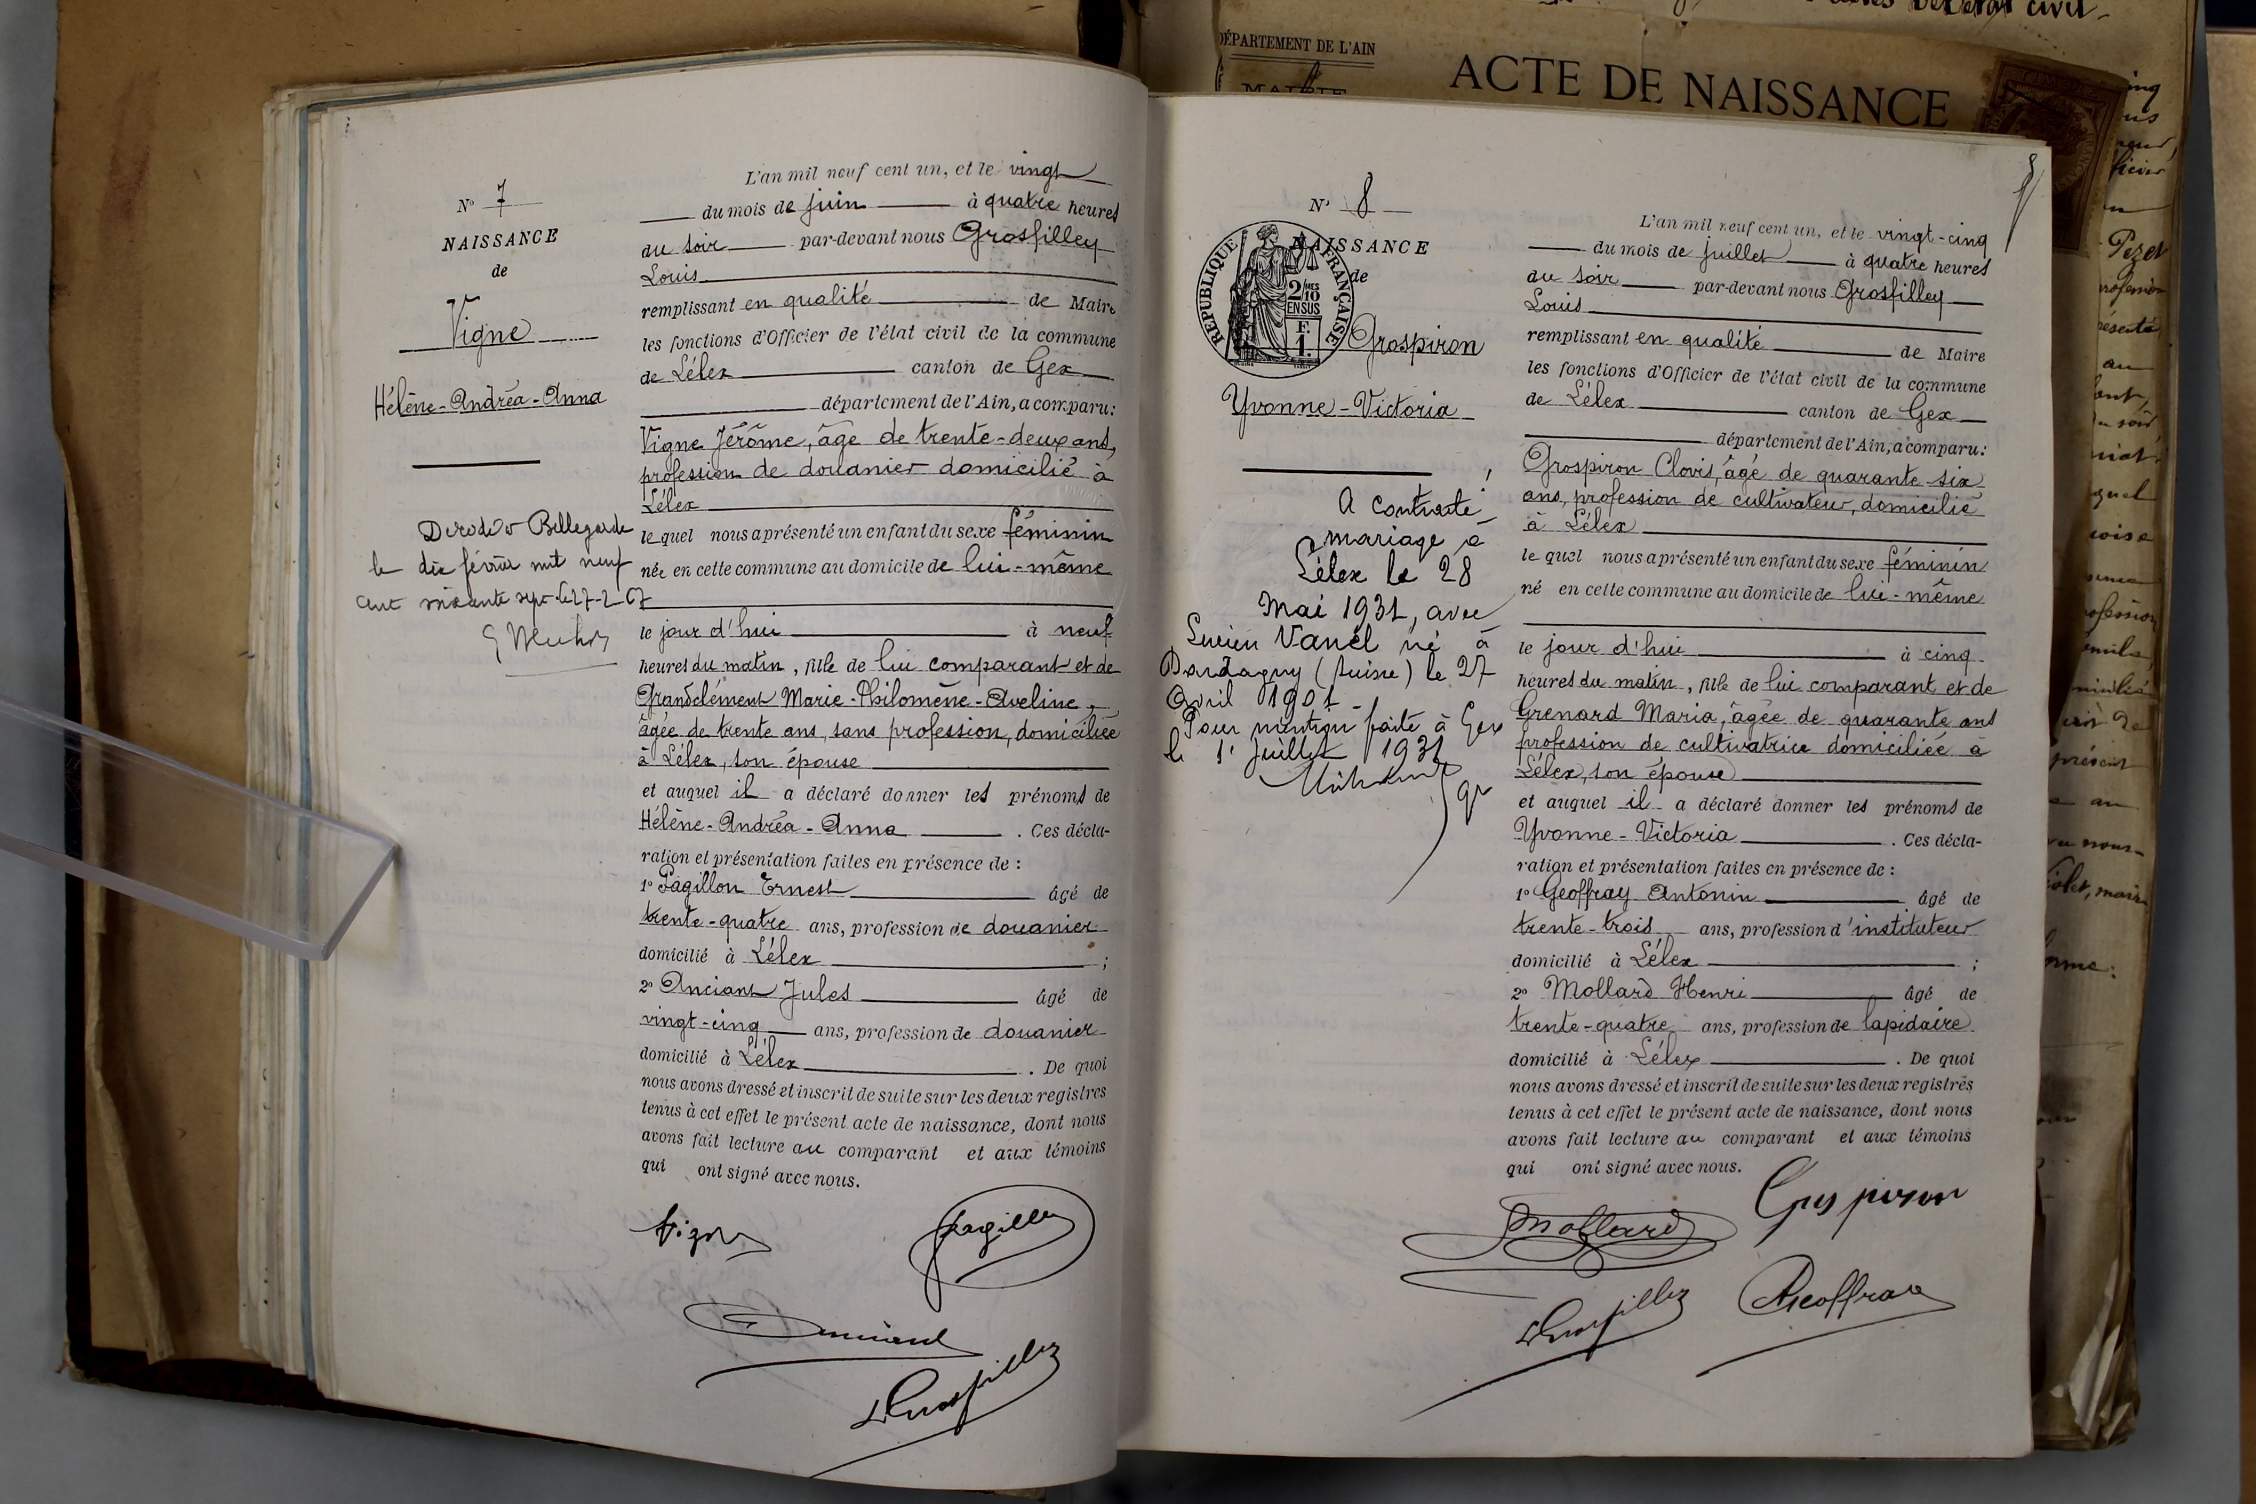 N° 7
NAISSANCE
de
Vigne
Hélène-Andréa-Anna
Bellegarde
le dix février mil neuf
cent soixante sept le 27-2-67
L'an mil neuf cent un, et le vingt
du mois de juin à quatre heures
du soir par-devant nous Grosfilley
Louis
remplissant en qualité de Maire
les fonctions d'Officier de l'état civil de la commune
de Lélex canton de Gex
département de l'Ain, a comparu:
Vigne Jérôme, âgé de trente-deux ans,
profession de douanier domicilié à
Lélex
lequel nous a présenté un enfant du sexe féminin
née en cette commune au domicile de lui-même
le jour d'hui à neuf
heures du matin, fille de lui comparant et de
Grandclément Marie-Philomène-Aveline,
âgée de trente ans, sans profession, domiciliée
à Lélex, son épouse
et auquel il a déclaré donner les prénoms de
Hélène-Andréa-Anna . Ces décla-
ration et présentation faites en présence de :
1° Pagillon Ernest âgé de
trente-quatre ans, profession de douanier
domicilié à Lélex ;
2° Anciant Jules âgé de
vingt-cinq ans, profession de douanier
domicilié à Lélex . De quoi
nous avons dressé et inscrit de suite sur les deux registres
tenus à cet effet le présent acte de naissance, dont nous
avons fait lecture au comparant et aux témoins
qui ont signé avec nous.
Vigne
Pagillon
Anciant
L Grosfilley
DÉPARTEMENT DE L'AIN
MAIRIE
ACTE DE NAISSANCE
N° 8
NAISSANCE
de
RÉPUBLIQUE FRANÇAISE
2/10 MES
EN SUS
F.
1.
Grospiron
Yvonne-Victoria
A contracté
mariage à
Lélex le 28
Mai 1931, avec
Lucien Vanel né à
Dardagny (Suisse) le 27
Avril 1901
Pour mention faite à Gex
le 1er Juillet 1931
8
L'an mil neuf cent un, et le vingt-cinq
du mois de juillet à quatre heures
du soir par-devant nous Grosfilley
Louis
remplissant en qualité de Maire
les fonctions d'Officier de l'état civil de la commune
de Lélex canton de Gex
département de l'Ain, a comparu:
Grospiron Clovis, âgé de quarante six
ans, profession de cultivateur, domicilié
à Lélex
lequel nous a présenté un enfant du sexe féminin
né en cette commune au domicile de lui-même
le jour d'hui à cinq
heures du matin, fille de lui comparant et de
Grenard Maria, âgée de quarante ans
profession de cultivatrice domiciliée à
Lélex, son épouse
et auquel il a déclaré donner les prénoms de
Yvonne-Victoria . Ces décla-
ration et présentation faites en présence de :
1° Geoffray Antonin âgé de
trente-trois ans, profession d'instituteur
domicilié à Lélex ;
2° Mollard Henri âgé de
trente-quatre ans, profession de lapidaire
domicilié à Lélex . De quoi
nous avons dressé et inscrit de suite sur les deux registres
tenus à cet effet le présent acte de naissance, dont nous
avons fait lecture au comparant et aux témoins
qui ont signé avec nous.
Grospiron
Mollard
L Grosfilley
Geoffray